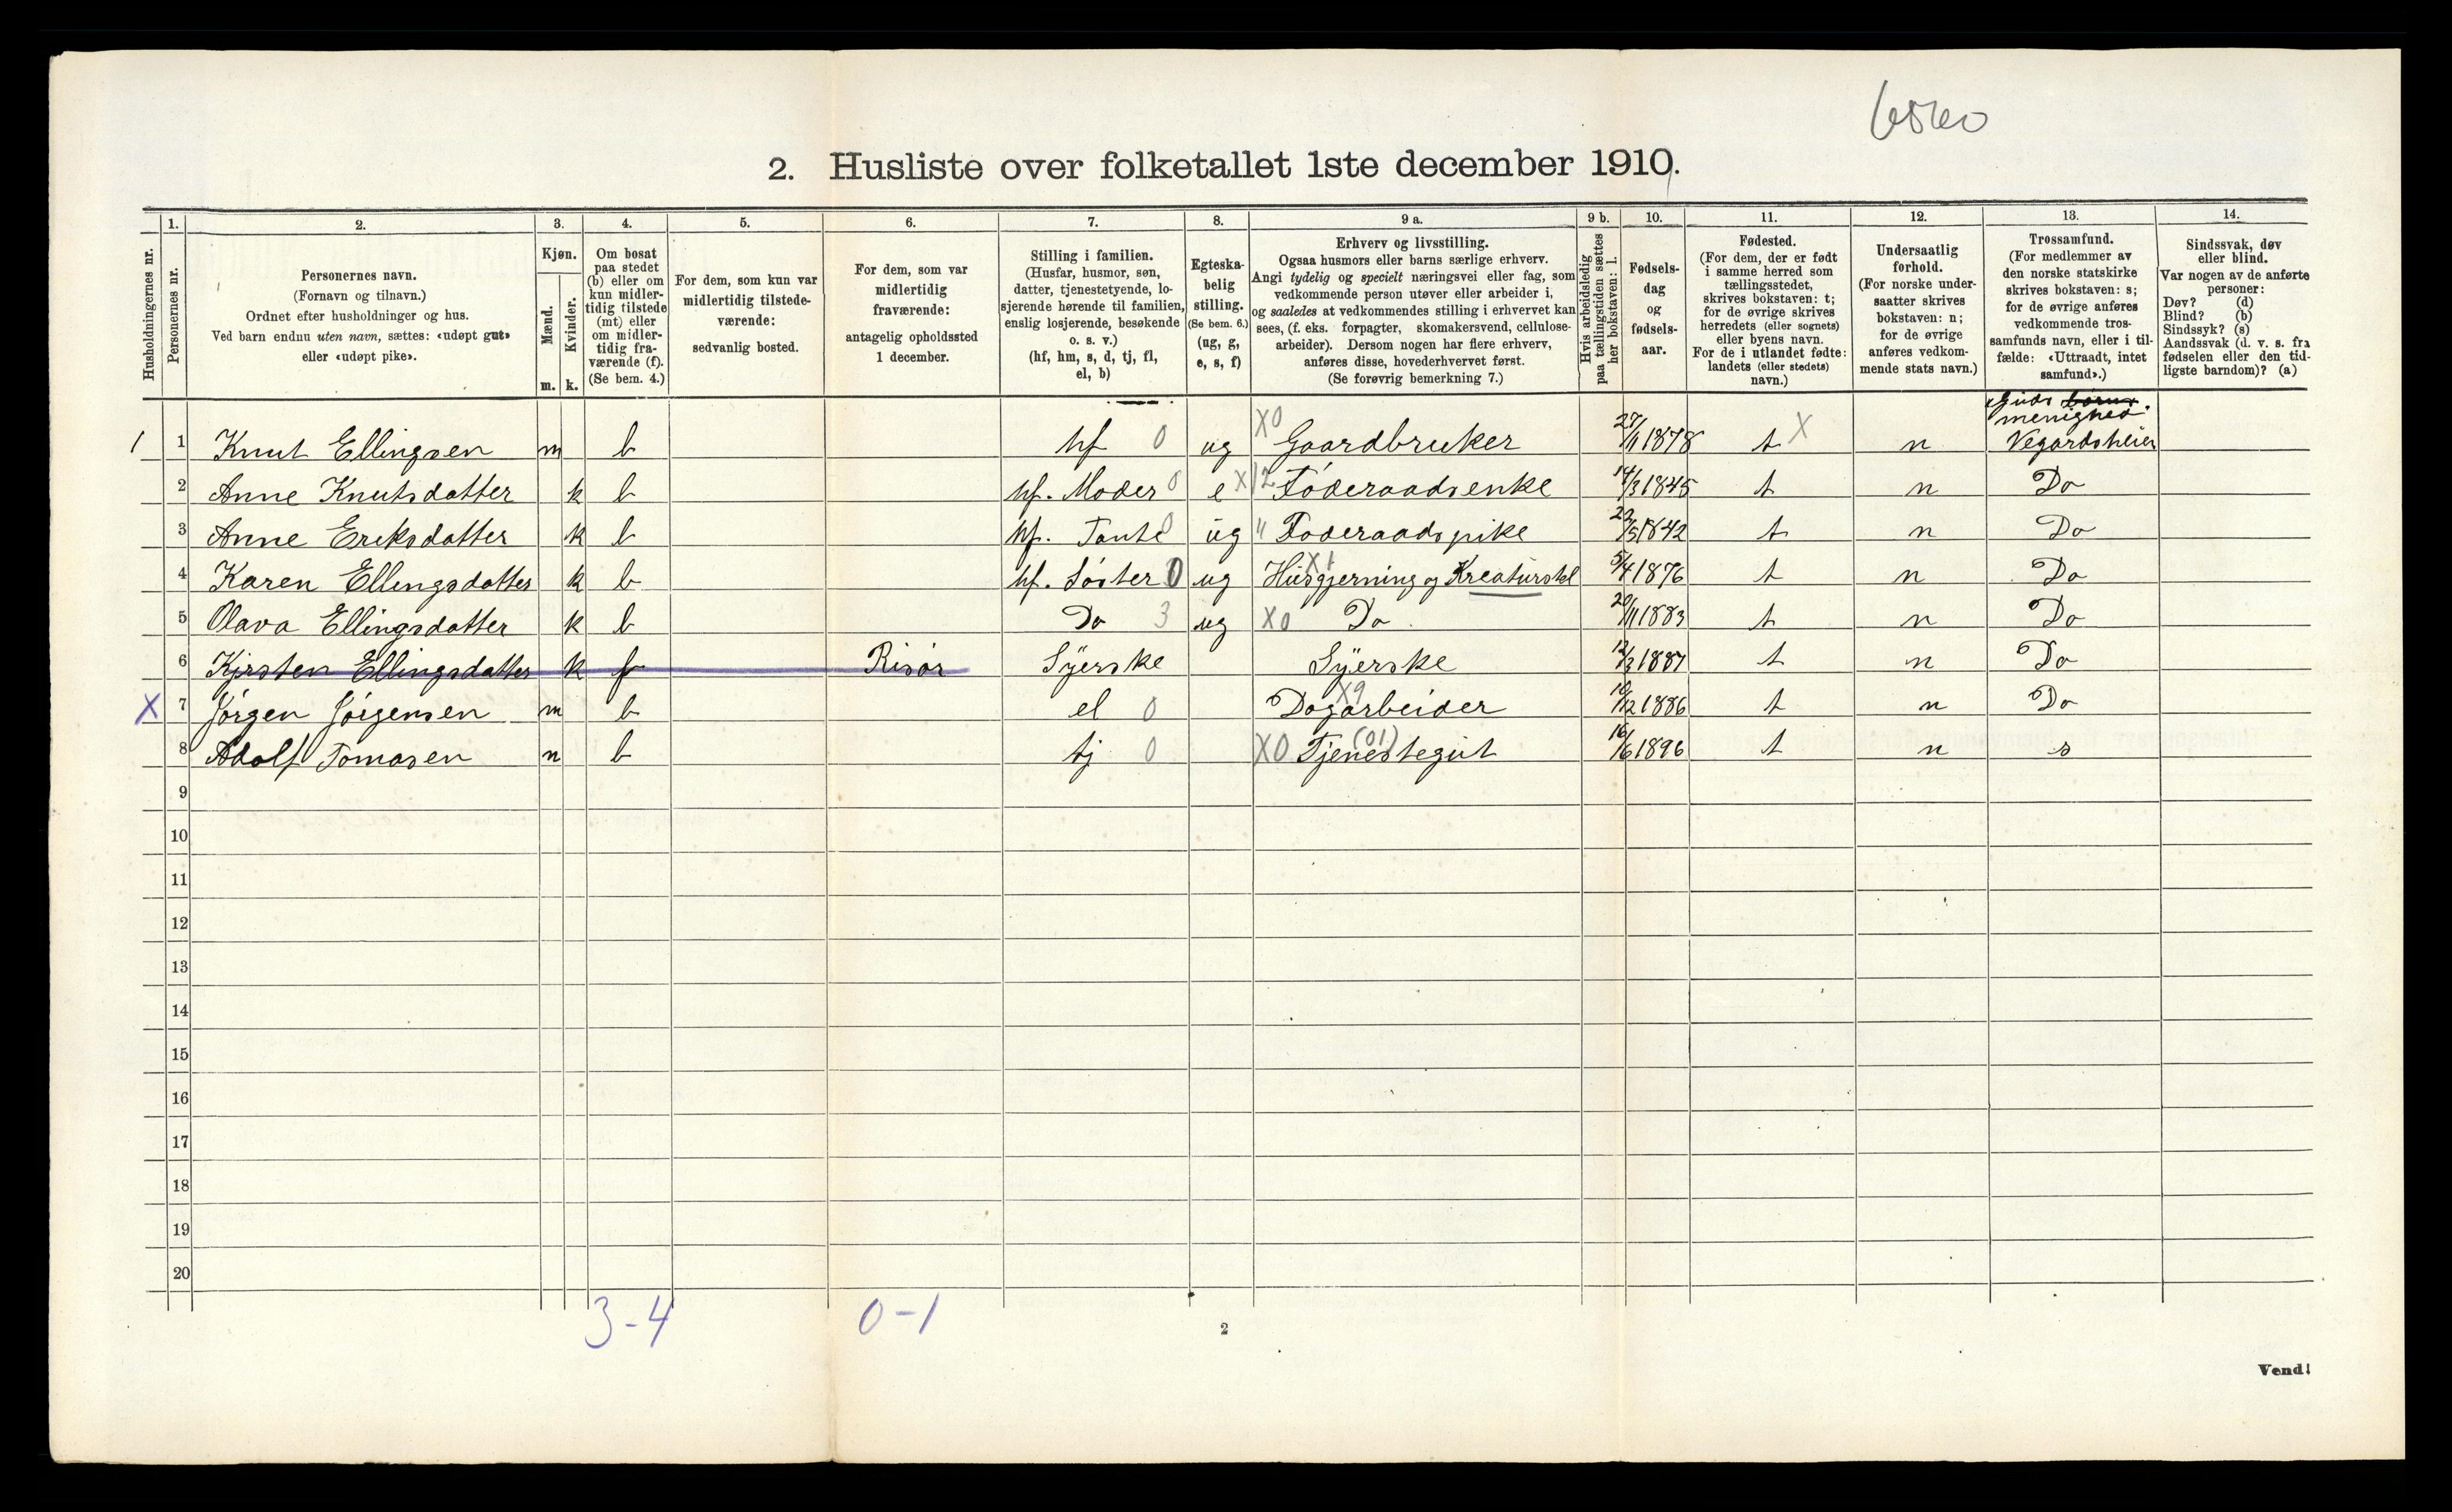 2. Husliste over folketallet 1ste december 1910.
Husholdningernes nr.
1.
Personernes nr.
2.
Personernes navn.
(Fornavn og tilnavn.)
Ordnet efter husholdninger og hus.
Ved barn endnu uten navn, sættes: «udøpt gut»
eller «udøpt pike».
3.
Kjøn.
Mænd.
Kvinder.
m. k.
4.
Om bosat
paa stedet
(b) eller om
kun midler-
tidig tilstede
(mt) eller
om midler-
tidig fra-
værende (f).
(Se bem. 4.)
5.
For dem, som kun var
midlertidig tilstede-
værende:
sedvanlig bosted.
6.
For dem, som var
midlertidig
fraværende:
antagelig opholdssted
1 december.
7.
Stilling i familien.
(Husfar, husmor, søn,
datter, tjenestetyende, lo-
sjerende hørende til familien,
enslig losjerende, besøkende
o. s. v.)
(hf, hm, s, d, tj, fl,
el, b)
8.
Egteska-
belig
stilling.
(Se bem. 6.)
(ug, g,
e, s, f)
9 a.
Erhverv og livsstilling.
Ogsaa husmors eller barns særlige erhverv.
Angi tydelig og specielt næringsvei eller fag, som
vedkommende person utøver eller arbeider i,
og saaledes at vedkommendes stilling i erhvervet kan
sees, (f. eks. forpagter, skomakersvend, cellulose-
arbeider). Dersom nogen har flere erhverv,
anføres disse, hovederhvervet først.
(Se forøvrig bemerkning 7.)
9 b.
Hvis arbeidsledig
paa tællingstiden sættes
her bokstaven: l.
10.
Fødsels-
dag
og
fødsels-
aar.
11.
Fødested.
(For dem, der er født
i samme herred som
tællingsstedet,
skrives bokstaven: t;
for de øvrige skrives
herredets (eller sognets)
eller byens navn.
For de i utlandet fødte:
landets (eller stedets)
navn.)
12.
Undersaatlig
forhold.
(For norske under-
saatter skrives
bokstaven: n;
for de øvrige
anføres vedkom-
mende stats navn.)
13.
Trossamfund.
(For medlemmer av
den norske statskirke
skrives bokstaven: s;
for de øvrige anføres
vedkommende tros-
samfunds navn, eller i til-
fælde: «Uttraadt, intet
samfund».)
14.
Sindssvak, døv
eller blind.
Var nogen av de anførte
personer:
Døv? (d)
Blind? (b)
Sindssyk? (s)
Aandssvak (d. v. s. fra
fødselen eller den tid-
ligste barndom)? (a)
1 1 Knut Ellingsen m b hf 0 ug X0 Gaardbruker 27/11 1878 t X n Guds menighed. Vegardsheien
2 Anne Knutsdatter k b hf. Moder 0 e X12 Føderaadsenke 14/3 1845 t n Do
3 Anne Eriksdatter k b hf. Tante 0 ug " Føderaadspike 22/5 1842 t n Do
4 Karen Ellingsdatter k b hf. Søster 0 ug X1 Husgjerning og Kreaturstel 5/4 1876 t n Do
5 Olava Ellingsdatter k b Do 3 ug X0 Do 20/11 1883 t n Do
6 Kjirsten Ellingsdatter k f Risør Syerske Syerske 12/3 1887 t n Do
X 7 Jørgen Jørgensen m b el 0 X9 Dagarbeider 10/12 1886 t n Do
8 Adolf Tomasen m b tj 0 X0 (01) Tjenestegut 16/6 1896 t n s
9
10
11
12
13
14
15
16
17
18
19
20
3-4 0-1
2
Vend!